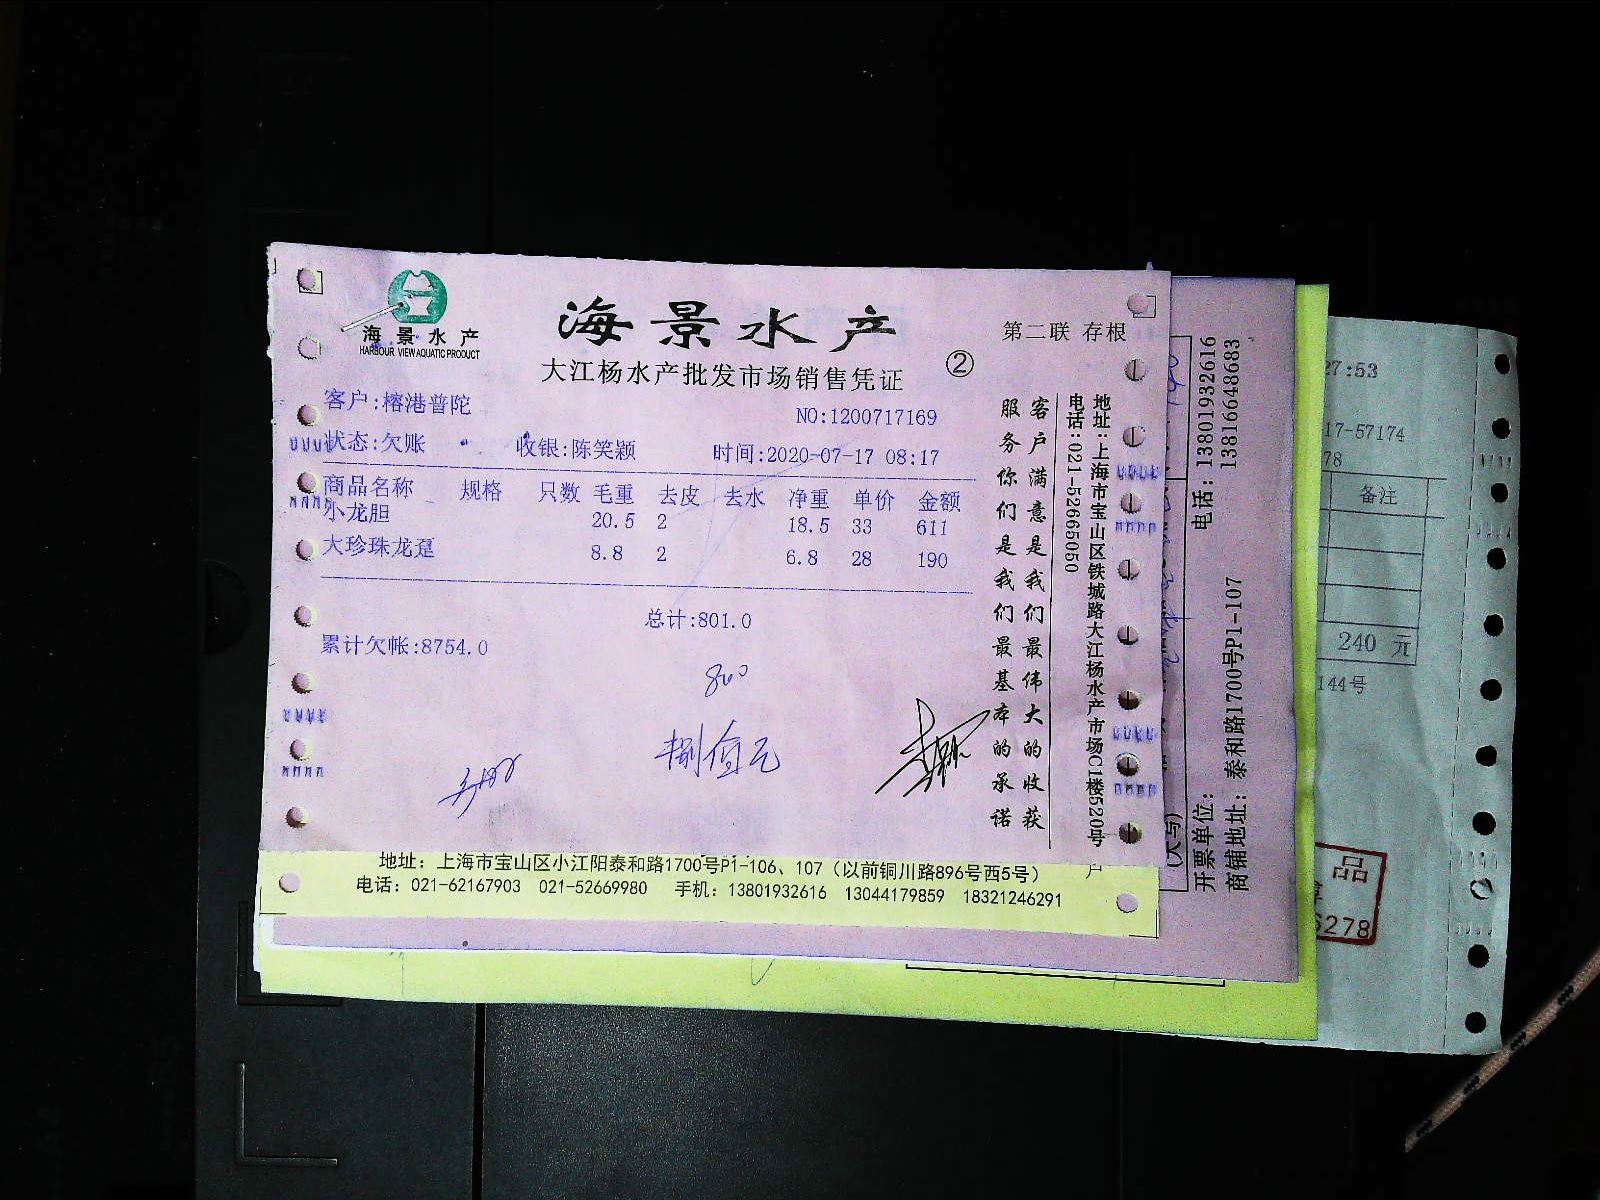 海景水产
HARBOUR VIEW AQUATIC PRODUCT
海景水产
第二联 存根
大江杨水产批发市场销售凭证 ②
客户:榕港普陀
NO:1200717169
状态:欠账 收银:陈笑颖 时间:2020-07-17 08:17
商品名称 规格 只数 毛重 去皮 去水 净重 单价 金额
小龙胆 20.5 2 18.5 33 611
大珍珠龙趸 8.8 2 6.8 28 190
总计:801.0
累计欠帐:8754.0
800
捌佰元
客户满意是我们最伟大的收获
服务你们是我们最基本的承诺
地址:上海市宝山区铁城路大江杨水产市场C1楼520号
电话:021-52665050
地址: 上海市宝山区小江阳泰和路1700号P1-106、107 (以前铜川路896号西5号)
电话: 021-62167903 021-52669980 手机: 13801932616 13044179859 18321246291
开票单位: 电话: 13801932616
13816648683
商铺地址: 泰和路1700号P1-107
27:53
17-57174
78
备注
240 元
144号
品
6278